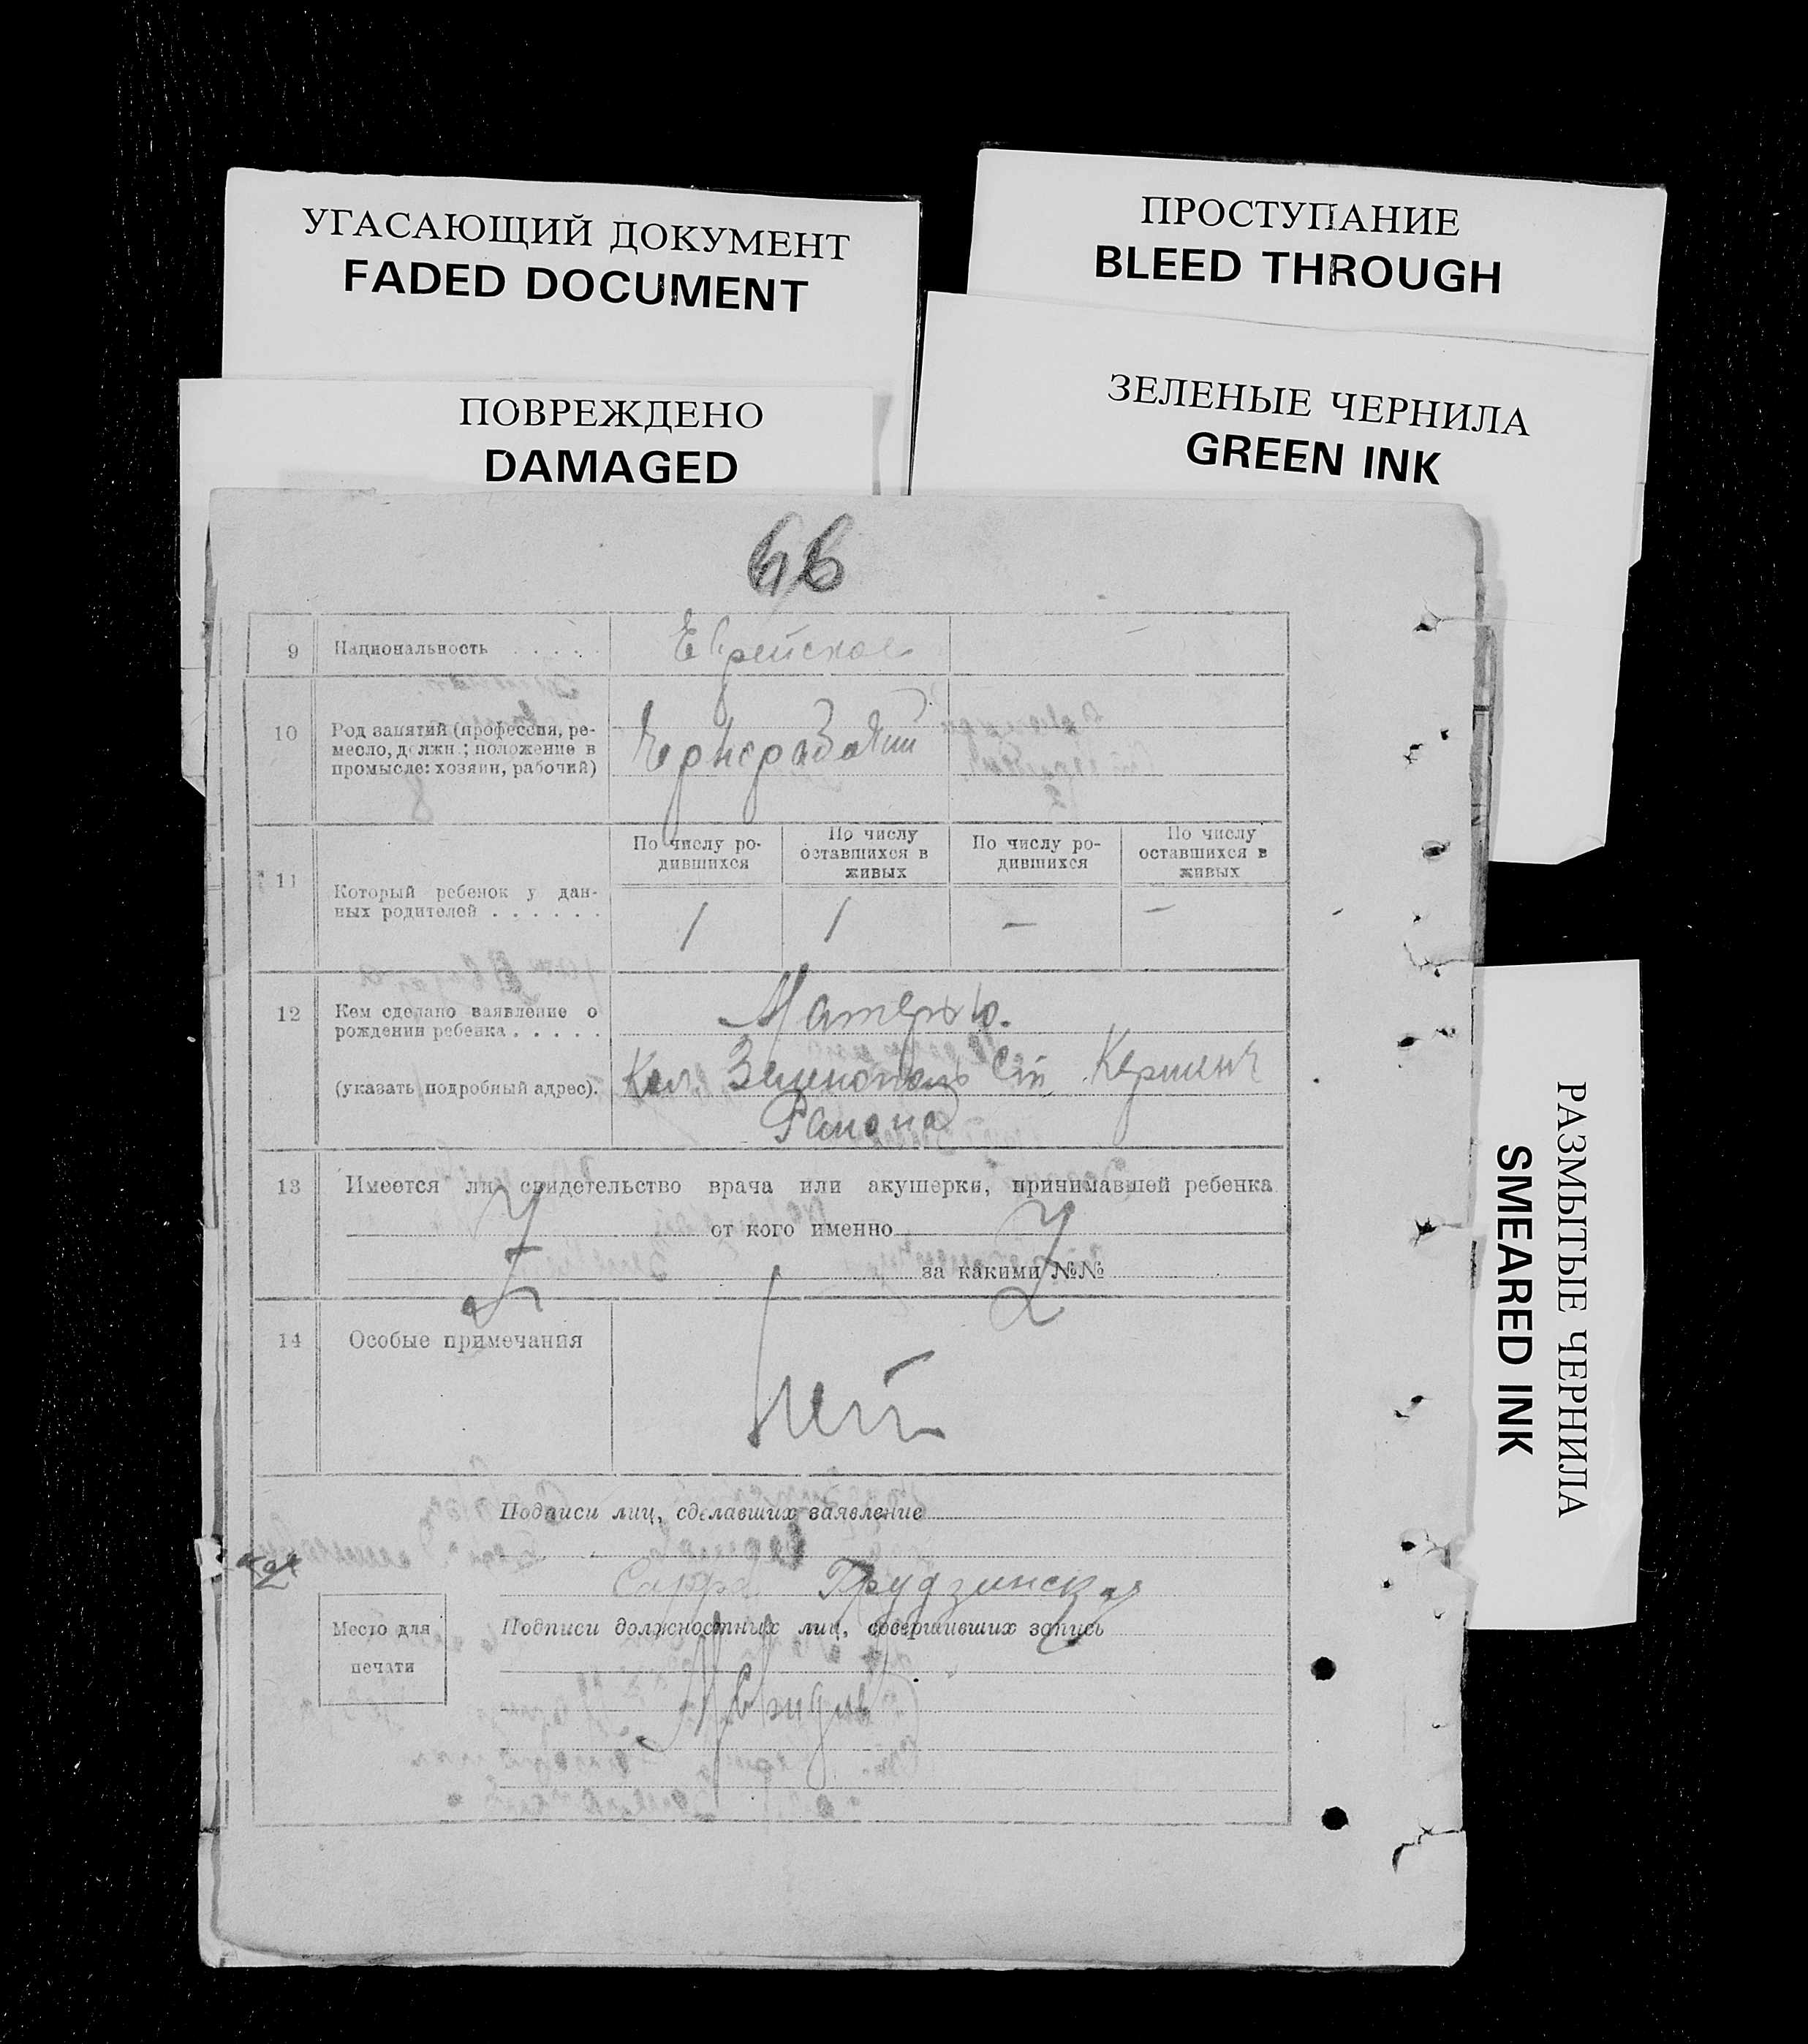 УГАСАЮЩИЙ ДОКУМЕНТ
FADED DOCUMENT
ПРОСТУПАНИЕ
BLEED THROUGH
ПОВРЕЖДЕНО
DAMAGED
ЗЕЛЕНЫЕ ЧЕРНИЛА
GREEN INK
РАЗМЫТЫЕ ЧЕРНИЛА
SMEARED INK
66
9 Национальность . . . . . Еврейское
10 Род занятий (профессия, ре-
месло, должн.; положение в
промысле: хозяин, рабочий)
Чернорабочий
По числу ро-
дившихся
По числу
оставшихся в
живых
По числу ро-
дившихся
По числу
оставшихся в
живых
11 Который ребенок у дан-
ных родителей . . . . . .
1 1 — —
12 Кем сделано заявление о
рождении ребенка . . . . .
Матерью.
(указать подробный адрес).
Кол. Зеленополь Ст.
Района
13 Имеется ли свидетельство врача или акушерки, принимавшей ребенка
от кого именно
за какими №№
14 Особые примечания
Нет
Подписи лиц, сделавших заявление
Сарра Грудзинская
Подписи должностных лиц, совершивших запись
Место для
печати